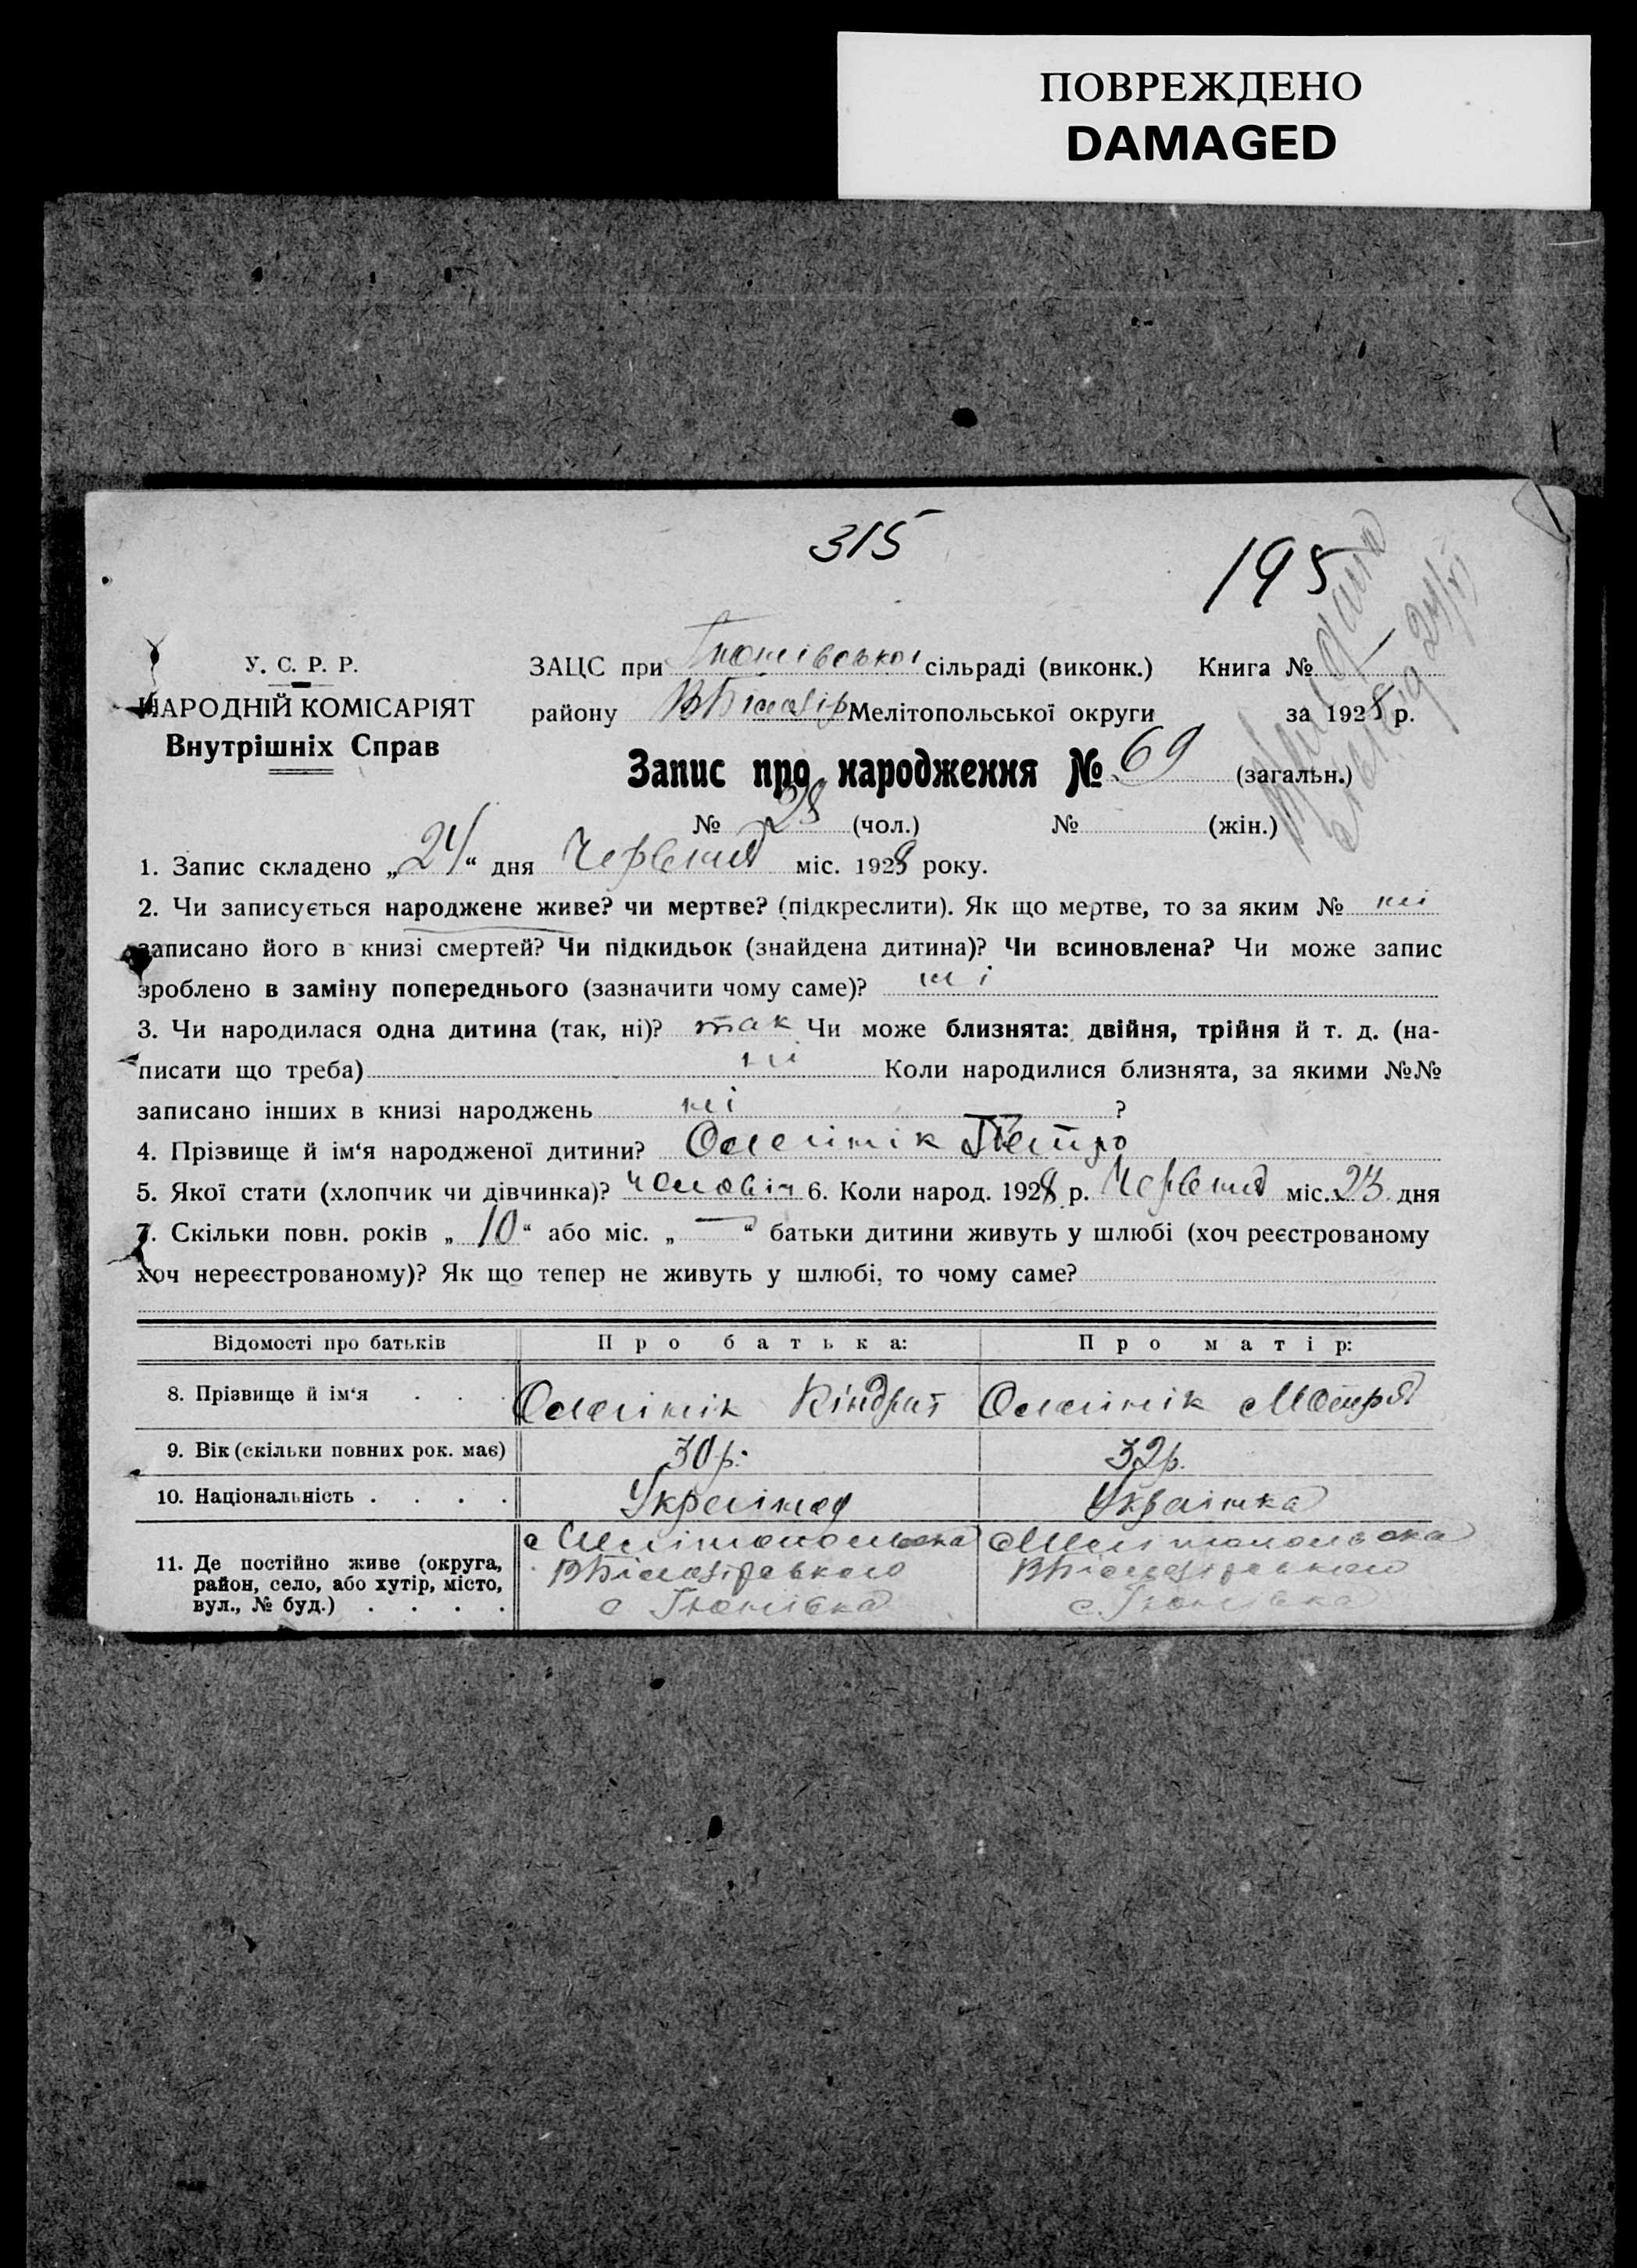 ПОВРЕЖДЕНО
DAMAGED
315
195
У. С. Р. Р.
НАРОДНІЙ КОМІСАРІЯТ
Внутрішніх Справ
ЗАЦС при сільраді (виконк.) Книга №
району ВБілозір Мелітопольської округи за 1928 р.
Запис про народження № 69 (загальн.)
№ 28 (чол.) № (жін.)
1. Запис складено „24“ дня Червния міс. 1928 року.
2. Чи записується народжене живе? чи мертве? (підкреслити). Як що мертве, то за яким № ні
записано його в книзі смертей? Чи підкидьок (знайдена дитина)? Чи всиновлена? Чи може запис
зроблено в заміну попереднього (зазначити чому саме)? ні
3. Чи народилася одна дитина (так, ні)? так Чи може близнята: двійня, трійня й т. д. (на-
писати що треба) ні Коли народилися близнята, за якими №№
записано інших в книзі народжень ні ?
4. Прізвище й ім‘я народженої дитини? Олейнік Петро
5. Якої стати (хлопчик чи дівчинка)? чоловіч 6. Коли народ. 1928 р. Червния міс. 23 дня
7. Скільки повн. років „10“ або міс. „—“ батьки дитини живуть у шлюбі (хоч реєстрованому
хоч нереєстрованому)? Як що тепер не живуть у шлюбі, то чому саме?
Відомості про батьків Про батька: Про матір:
8. Прізвище й ім‘я . . . Олейнік Кіндрат Олейнік Мотря
9. Вік (скільки повних рок. має) 30 р. 32 р.
10. Національність . . . . Українец Українка
11. Де постійно живе (округа, Мелітопольска Мелітопольска
район, село, або хутір, місто, ВБілозірсвкого ВБілозірсвкого
вул., № буд.) . . . . с с.